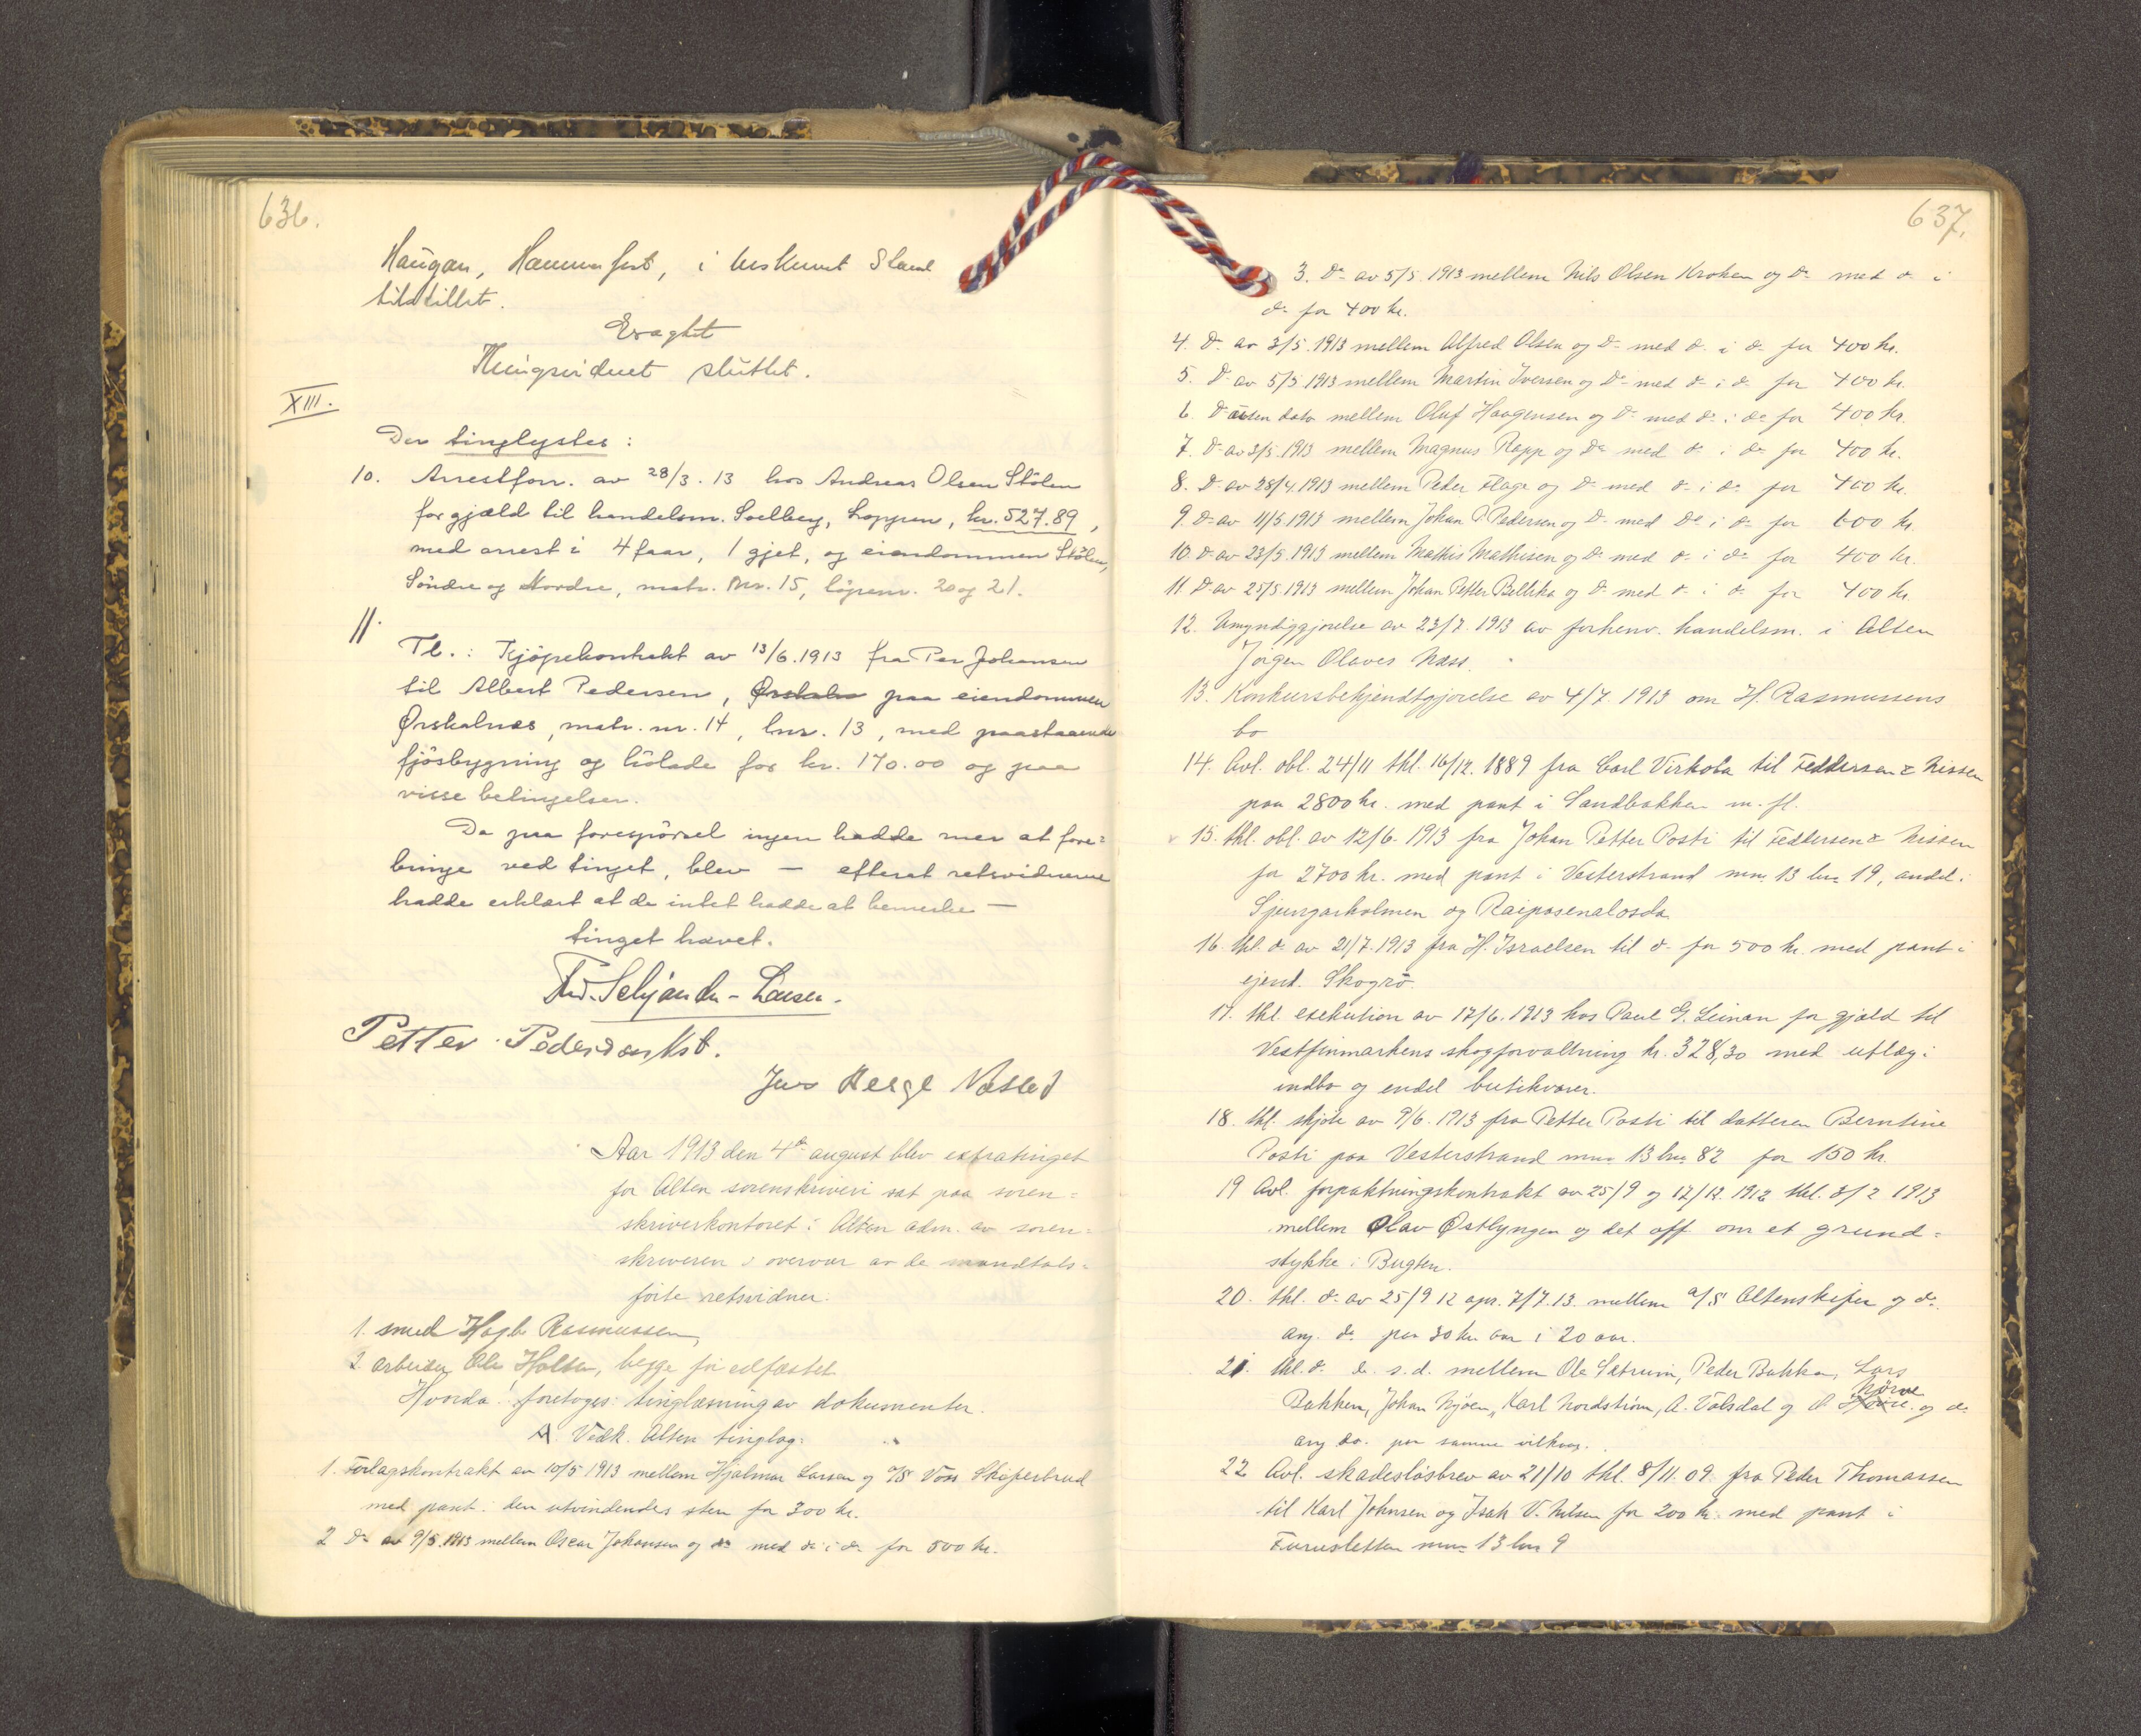 636.
Haugan, Hammerfest, i beskrevet Stand
tilstillet.
Eragtet
Thingsvidnet sluttet.
XIII.
Der tinglystes:
10. Arrestforr. av 28/3.13 hos Andreas Olsen Stölen
for gjæld til handelsm. Soelberg, Loppen, kr. 527.89,
med arrest i 4 faar, 1 gjet, og eiendommen Stölen,
Söndre og Nordre, matr. nr. 15, löpenr. 20 og 21.
11.
Tl.: Kjöpekontrakt av 13/6.1913 fra Per Johansen
til Albert Pedersen, paa eiendommen
Ørskalnes, matr. nr. 14, lnr. 13, med paastaaende
fjösbygning og hölade for kr. 170.00 og paa
visse betingelser.
Da paa forespörsel ingen hadde mer at fore=
bringe ved tinget, blev — efterat retsvidnerne
hadde erklært at de intet hadde at bemerke —
tinget hævet.
Schjander-Larsen.
Petter Pedersen
Jens Helge
Aar 1913 den 4de august blev extratinget
for Alten sorenskriveri sat paa soren=
skriverkontoret i Alten adm. av soren=
skriveren i overvær av de mandtals=
förte retsvidner:
1. smed Hagb. Rasmussen,
2 arbeider Ole Holten, begge för edfæstet.
Hvorda! foretoges: tinglæsning av dokumenter.
A. Vedk. Alten tinglag:
1. Forlagskontrakt av 10/5 1913 mellem Hjalmar Larsen og A/S Voss Skiferbrud
med pant i den utvindendes sten for 300 kr.
2 Do av 9/5.1913 mellem Oscar Johansen og do med do i do for 500 kr.
637.
3. Do av 5/5.1913 mellem Nils Olsen Kroken og Do med do i
do for 400 kr.
4. Do av 3/5.1913 mellem Alfred Olsen og Do med do i do for 400 kr.
5. Do av 5/5 1913 mellem Martin Iversen og Do med do i do for 400 kr.
6. Do uten dato mellem Oluf Haagensen og Do med do i do for 400 kr.
7. Do av 3/5.1913 mellem Magnus Rapp og Do med do i do for 400 kr.
8. Do av 28/4 1913 mellem Peder Flage og Do med do i do for 400 kr.
9. Do av 11/5.1913 mellem Johan P. Pedersen og Do med Do i do for 600 kr.
10. Do av 23/5.1913 mellem Mathis Mathisen og Do med do i do for 400 kr.
11. Do av 25/5.1913 mellem Johan Petter Bellika og Do med do i do for 400 kr.
12. Umyndiggjörelse av 23/7.1913 av forhenv. handelsm. i Alten
Jörgen Olaves Næss.
13. Konkursbekjendtgjörelse av 4/7.1913 om H. Rasmussens
bo
14. Avl. obl. 24/11 thl. 16/12.1889 fra Carl Virkola til Feddersen & Nissen
paa 2800 kr. med pant i Sandbakken m. fl.
15. thl. obl. av 12/6.1913 fra Johan Petter Posti til Feddersen & Nissen
for 2700 kr. med pant i Vesterstrand mnr 13 lnr 19, andel i
Sjungarholmen og Raiposenalosda
16. thl. do av 21/7.1913 fra H. Israelsen til do for 500 kr. med pant i
ejend. Skogrö.
17. thl. exekution av 17/6.1913 hos Paul G. Leinan for gjæld til
Vestfinmarkens skogforvaltning kr. 328,30 med utlæg i
indbo og endel butikvarer.
18. thl. skjöte av 9/6.1913 fra Petter Posti til datteren Berntine
Posti paa Vesterstrand mnr 13 lnr 82 for 150 kr.
19 Avl. forpaktningskontrakt av 25/9 og 17/12.1912 thl. 3/2 1913
mellem Olav Østlyngen og det off om et grund=
stykke i Bugten.
20. thl. do av 25/9 12 apr. 7/7.13 mellem A/S Altenskifer og do
ang. do paa 30 kr aar i 20 aar.
21. thl. do. s.d. mellem Ole Sætrum, Peder Bakken, Lars
Bakken, Johan Mjöen, Karl Nordström, A. Valsdal og O Nörve og do
ang do. paa samme vilkaar.
22 Avl. skadeslösbrev av 21/10 thl. 8/11.09 fra Peder Thomassen
til Karl Johnsen og Isak V. Nilsen for 200 kr. med pant i
Furusletten mnr 13 lnr 9